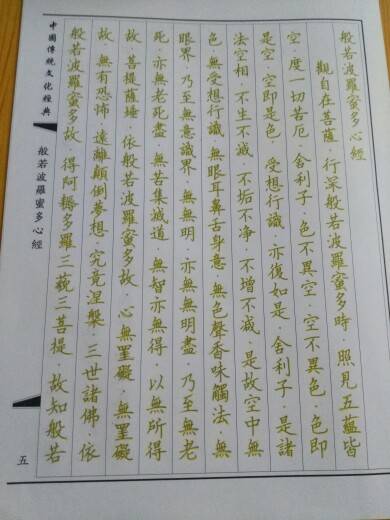 般若波羅蜜多心經
觀自在菩薩·行深般若波羅蜜多時·照見五蘊皆
空·度一切苦厄·舍利子·色不異空·空不異色·色即
是空·空即是色·受想行識·亦復如是·舍利子·是諸
法空相·不生不滅·不垢不净·不增不減·是故空中無
色·無受想行識·無眼耳鼻舌身意·無色聲香味觸法·無
眼界·乃至無意識界·無無明·亦無無明盡·乃至無老
死·亦無老死盡·無苦集滅道·無智亦無得·以無所得
故·菩提薩埵·依般若波羅蜜多故·心無罣礙·無罣礙
故·無有恐怖·遠離顛倒夢想·究竟涅槃·三世諸佛·依
般若波羅蜜多故·得阿耨多羅三藐三菩提·故知般若
中國傳統文化經典
般若波羅蜜多心經
五